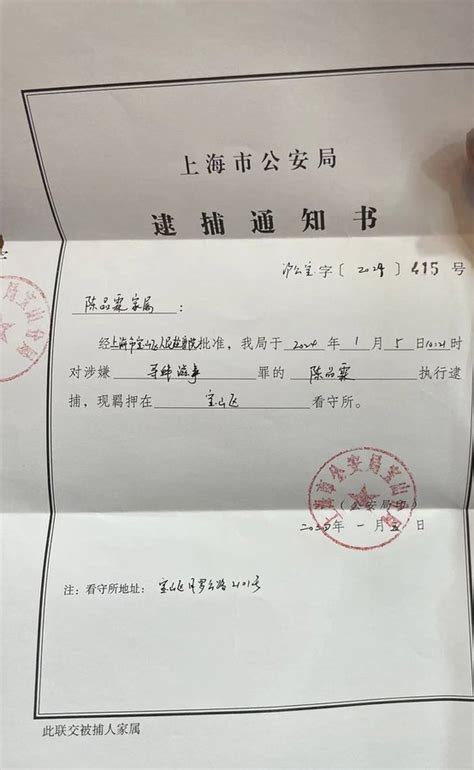 上海市公安局
逮捕通知书
沪公宝字〔2024〕415号
陈品霖家属：
经上海市宝山区人民检察院批准，我局于2024年1月5日10:21时
对涉嫌寻衅滋事罪的陈品霖执行逮
捕，现羁押在宝山区看守所。
上海市公安局宝山分局
（公安局印）
2024年一月五日
注：看守所地址：宝山区月罗公路2101号
此联交被捕人家属